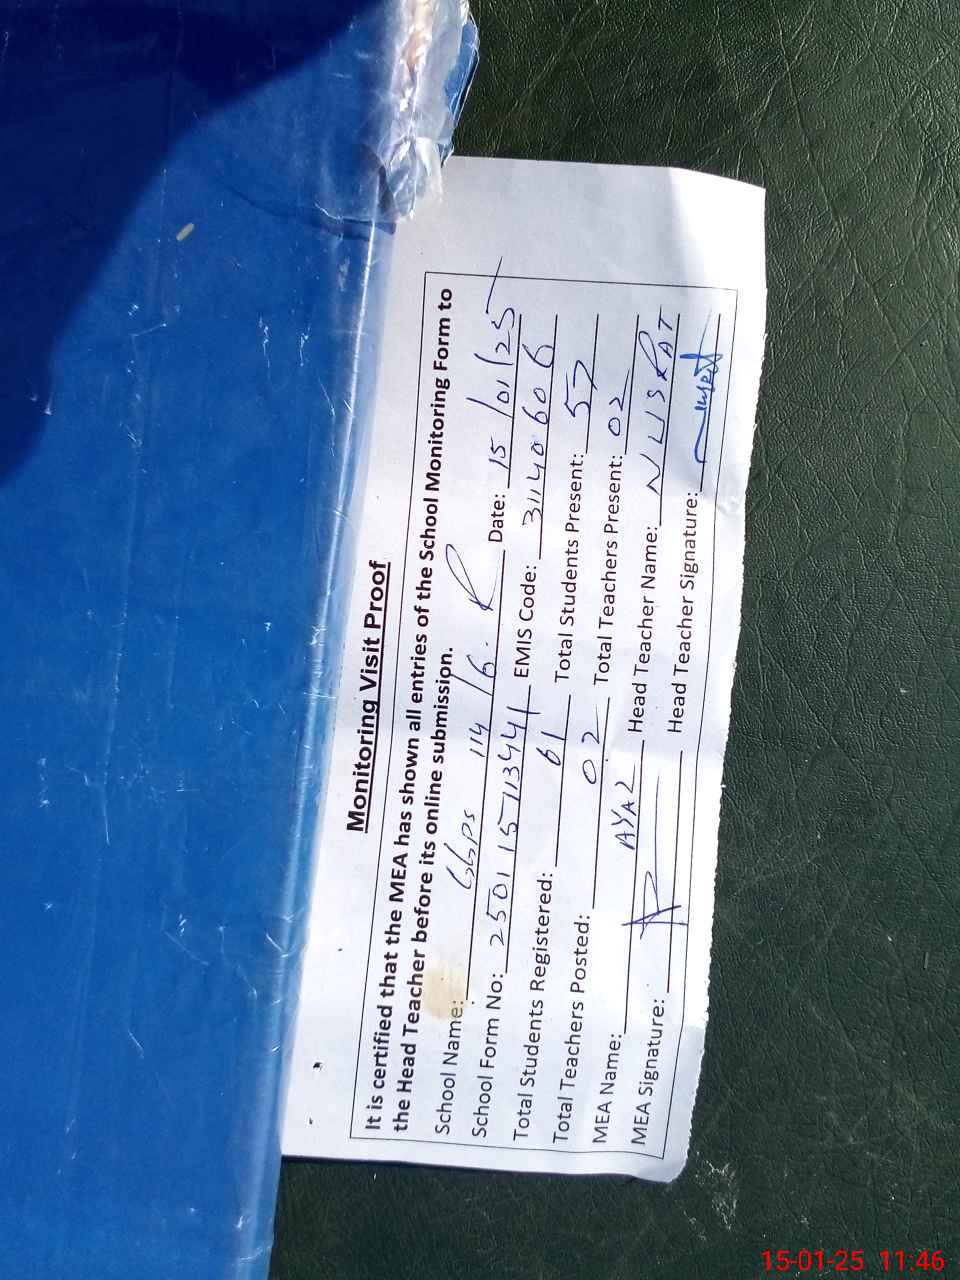 Monitoring Visit Proof
It is certified that the MEA has shown all entries of the School Monitoring Form to
the Head Teacher before its online submission.
School Name: GGPS 114/6.R Date: 15/01/25
School Form No: 250115113441 EMIS Code: 31140606
Total Students Registered: 61 Total Students Present: 57
Total Teachers Posted: 02 Total Teachers Present: 02
MEA Name: AYAZ Head Teacher Name: NUSRAT
MEA Signature: Head Teacher Signature:
15-01-25 11:46